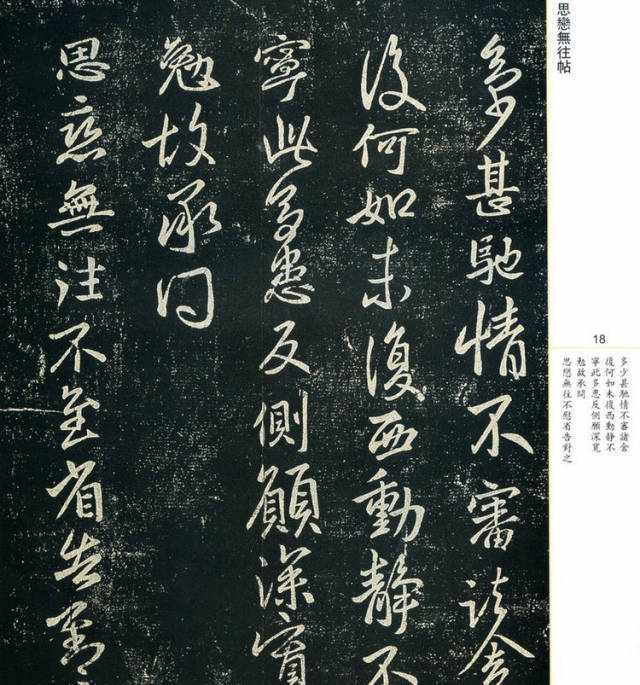 思戀無往帖
多少甚馳情不審諸舍
復何如未復西動靜不
寧此多患反側願深寬
勉故承問
思戀無往不至省告對
18
多少甚馳情不審諸舍
復何如未復西動靜不
寧此多患反側願深寬
勉故承問
思戀無往不慰省告對之